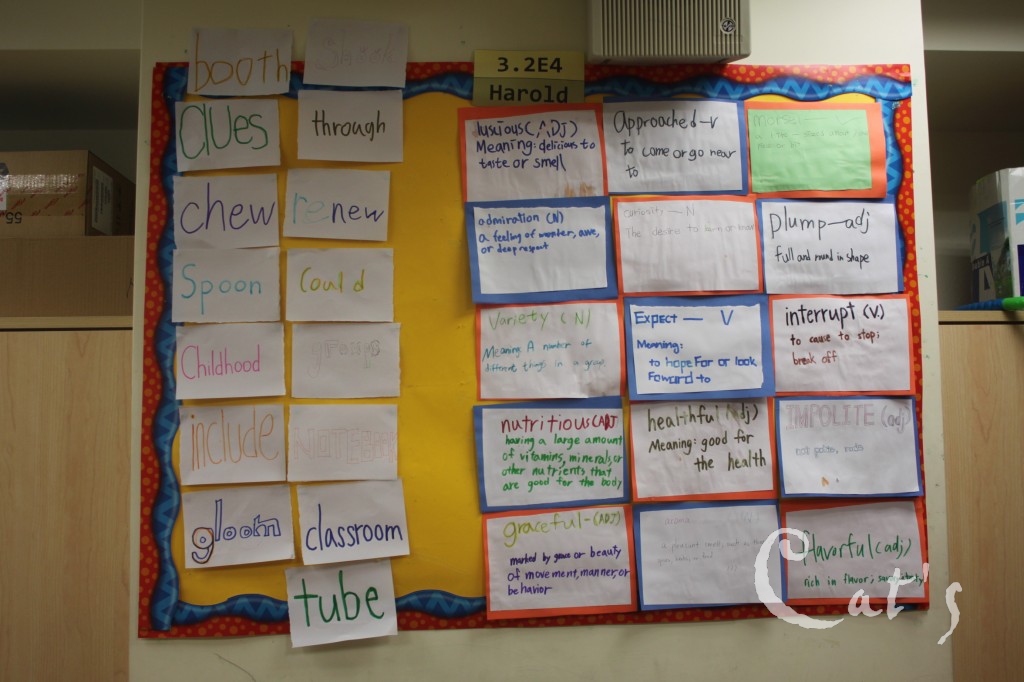 booth
3.2E4
Harold
clues
through
chew
renew
Spoon
Could
Childhood
include
gloom
classroom
tube
luscious (ADJ)
Meaning: delicious to
taste or smell
Approached - v
to come or go near
to
admiration (N)
a feeling of wonder, awe,
or deep respect
curiosity - N
The desire to learn or know
Plump - adj
full and round in shape
Variety (N)
Meaning: A number of
different things in a group
Expect - V
Meaning:
to hope For or look
Forward to
interrupt (v.)
to cause to stop;
break off
nutritious (ADJ
having a large amount
of vitamins, minerals, or
other nutrients that
are good for the body
healthful (Adj)
Meaning: good for
the health
IMPOLITE (adj)
not polite, rude
graceful - (ADJ)
marked by grace or beauty
of movement, manner, or
behavior
flavorful (adj)
rich in flavor;
Cat's
55